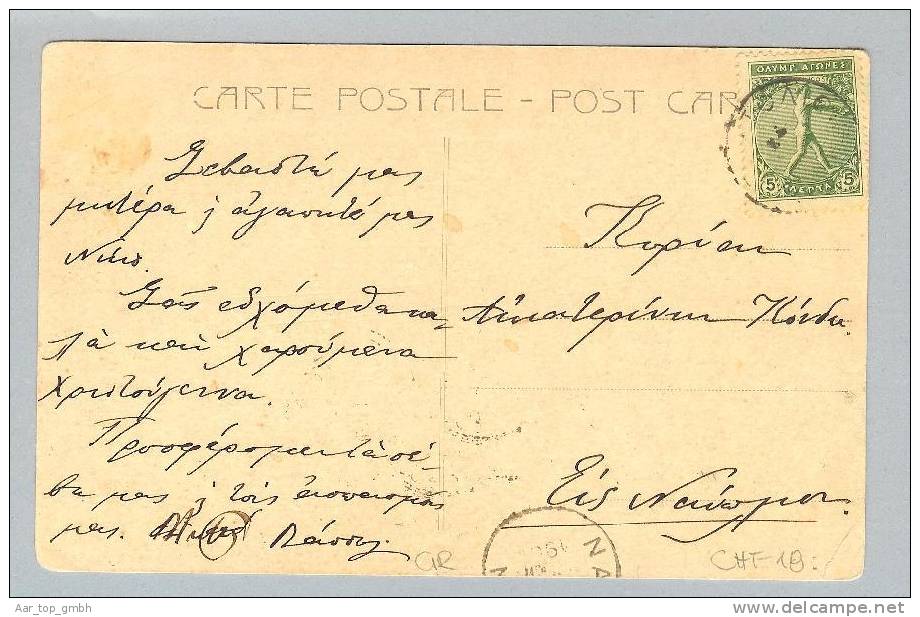 CARTE POSTALE - POST CAR
ΟΛΥΜΠ. ΑΓΩΝΕΣ
5 ΛΕΠΤΑ 5
Σεβαστή μας
μητέρα ἀγαπητέ μας
Νῖκο.
Σᾶς εὐχόμεθα κα
λὰ καὶ χαρούμενα
Χριστούγεννα.
Προσφέρομεν τὰ σέ-
βη μας τοὺς ἀσπασμούς
μας.
Κυρίαν
Αἰκατερίνην
Εἰς Ναύπλιον
ΝΑ
GR
CHF 19.-
Aar_top_gmbh
www.delcampe.net